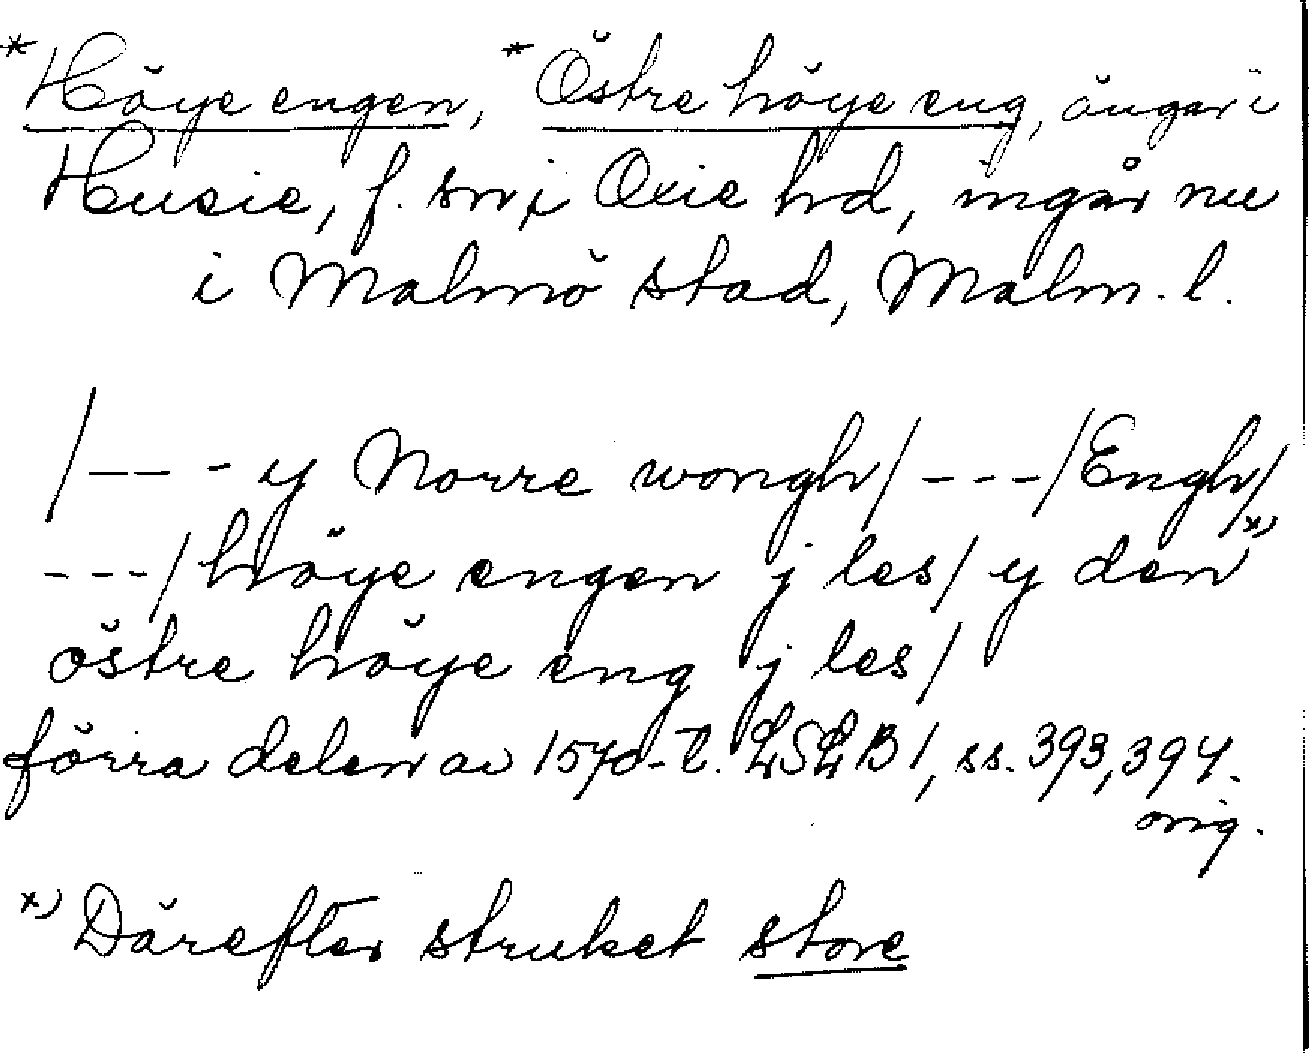 *Höye engen, *Östre höye eng, ängar i
Husie, f. sn i Oxie hd, ingår nu
i Malmö stad, Malm. l.
/--- y Norre wongh/---/Engh/
---/ höye engen j les/ y den x)
östre höye eng j les/
förra delen av 1570-t. LSLB 1, ss. 393, 394.
orig.
x) Därefter struket store